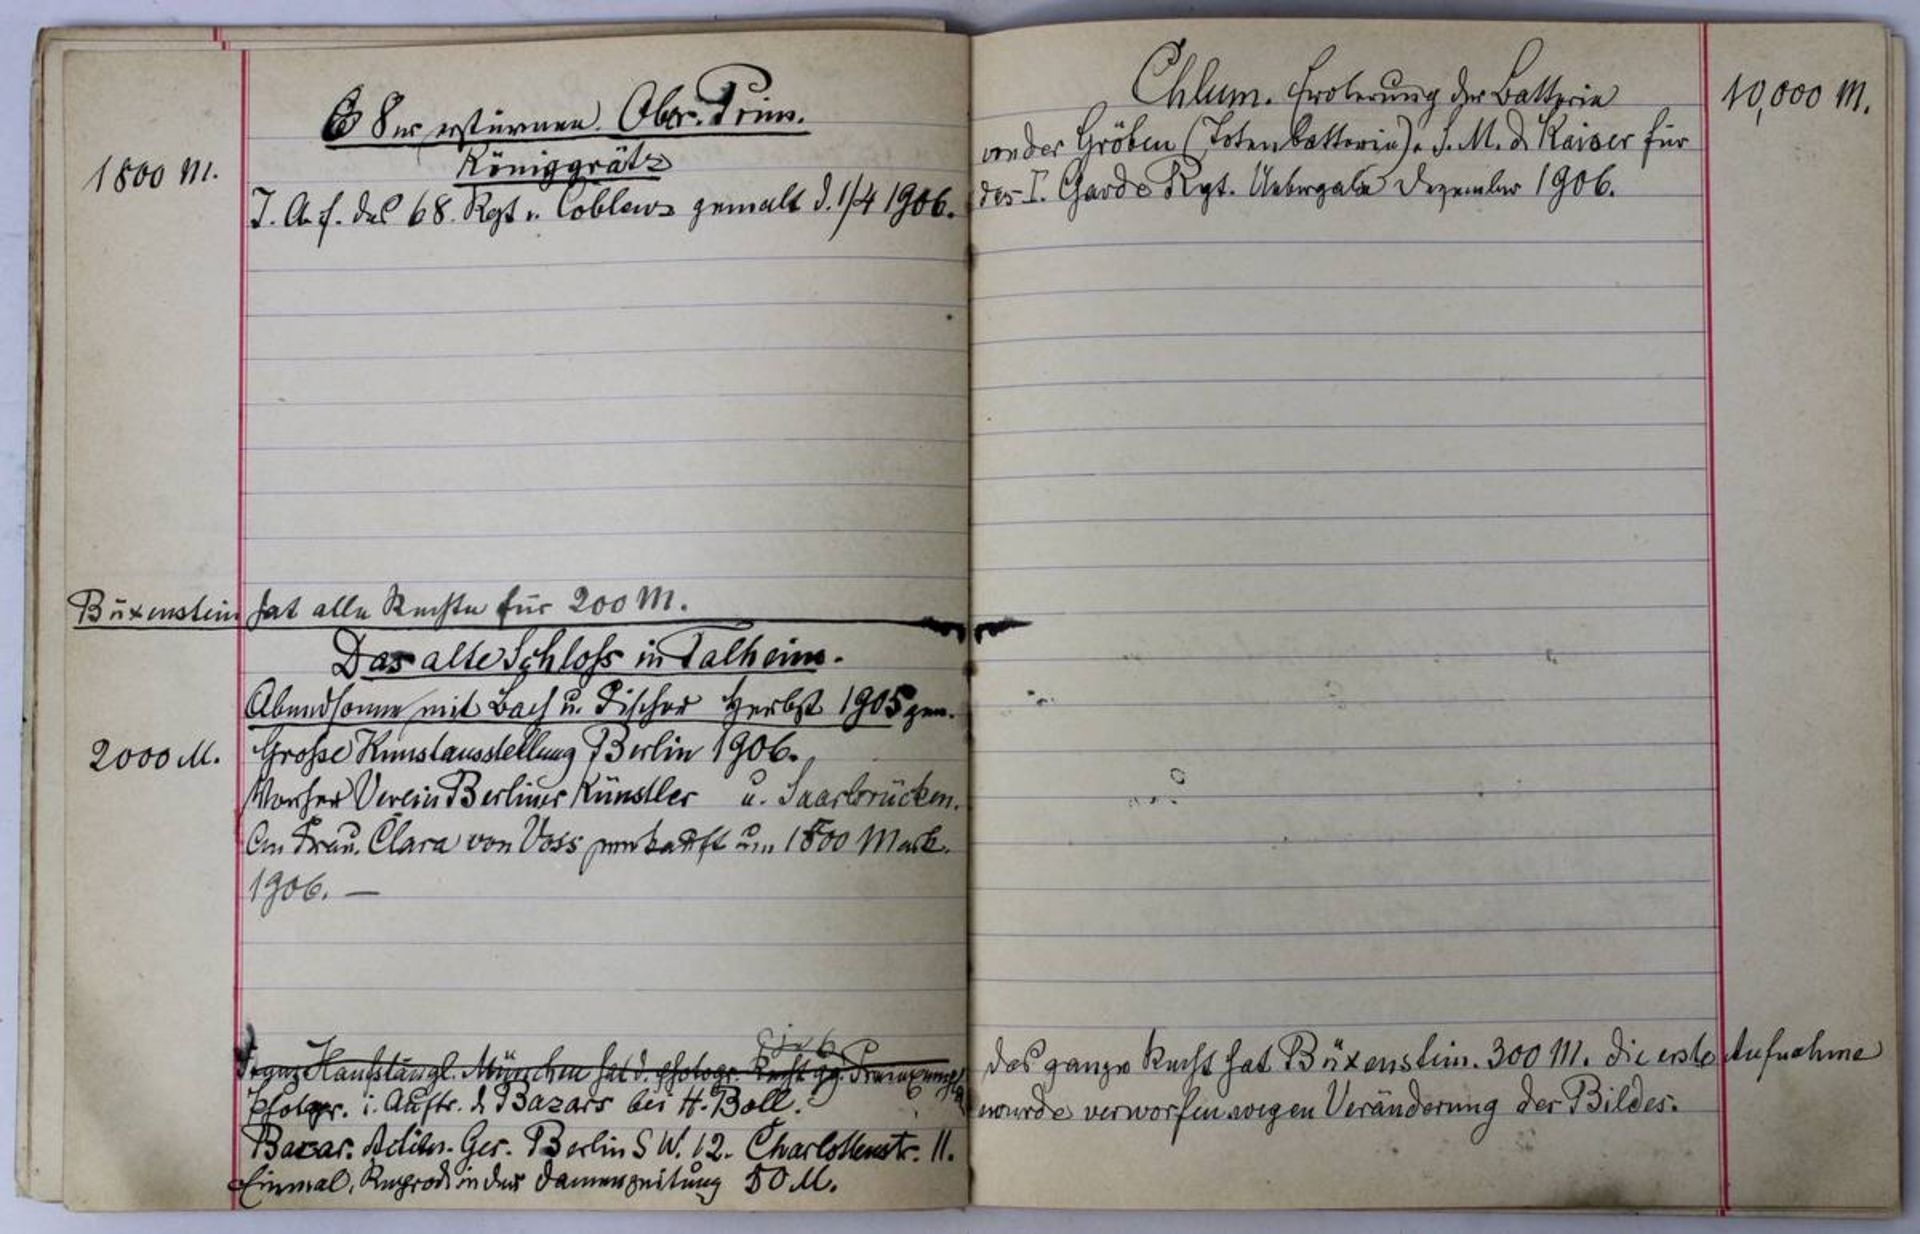 68er erstürmen Ober-Prim.
Königgrätz
1800 M.
I. A. f. das 68. Rgt. Coblenz gemalt d. 1/4 1906.
Büxenstein hat alle Rechte für 200 M.
Das alte Schloss in Talheim.
Abendsonne mit Bach u. Fischer Herbst 1905 gem.
2000 M. Große Kunstausstellung Berlin 1906.
Vorher Verein Berliner Künstler u. Saarbrücken.
An Frau Clara von Voss verkauft um 1500 Mark.
1906. —
Franz Hanfstängl. München hat d. photogr. Recht gg.
Photogr. i. Auftr. d. Bazars bei H. Boll.
Bazar. Actien-Ges. Berlin S W. 12. Charlottenstr. 11.
Einmal. Reprod. in der Damenzeitung 50 M.
Chlum. Eroberung der Batterie 10,000 M.
von der Gröben (Totenbatterie). S. M. d. Kaiser für
das I. Garde Rgt. Uebergabe Dezember 1906.
das ganze Recht hat Büxenstein. 300 M. die erste Aufnahme
wurde verworfen wegen Veränderung des Bildes.